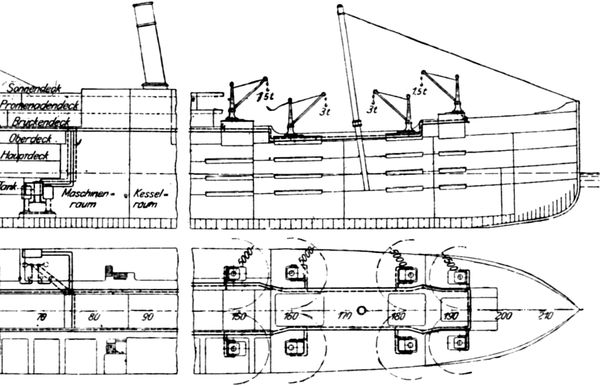 Sonnendeck
Promenadendeck
Brückendeck
Oberdeck
Hauptdeck
Tank
Maschinen-
raum
Kessel-
raum
1,5t
3t
3t
1,5t
5000
5000
5000
5000
78 80 90 150 160 170 180 190 200 210